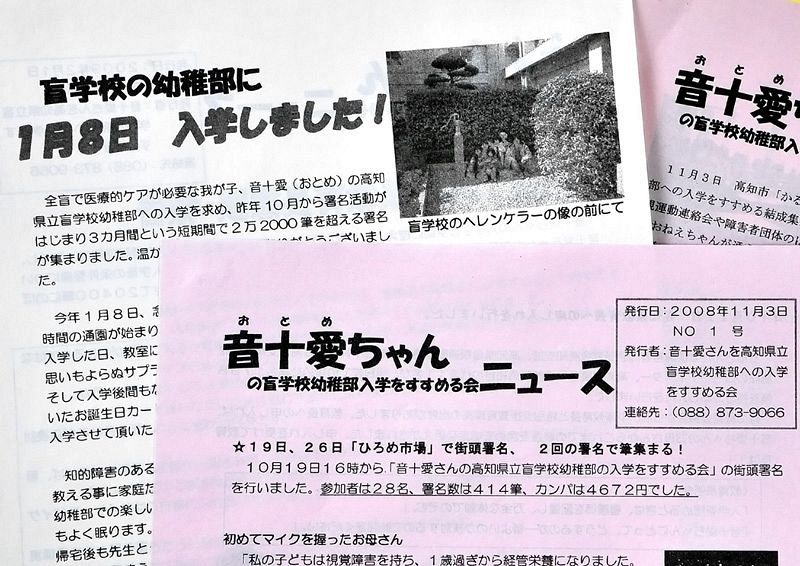 盲学校の幼稚部に
1月8日　入学しました！
全盲で医療的ケアが必要な我が子、音十愛（おとめ）の高知
県立盲学校幼稚部への入学を求め、昨年10月から署名活動が
はじまり3カ月間という短期間で2万2000筆を超える署名
が集まりました。温か
た。
盲学校のヘレンケラーの像の前にて
今年1月8日、
時間の通園が始まり
入学した日、教室に
思いもよらぬサプラ
そして入学後間もな
いたお誕生日カー
入学させて頂いた
知的障害のある
教える事に家庭た
幼稚部での楽しい
もよく眠ります。
帰宅後も先生と
おとめ
音十愛ち
の盲学校幼稚部入
11月3日　高知市「かる
部への入学をすすめる結成集
運動連絡会や障害者団体の
おねえちゃんが
おとめ
音十愛ちゃん
の盲学校幼稚部入学をすすめる会ニュース
発行日：2008年11月3日
NO　1　号
発行者：音十愛さんを高知県立
盲学校幼稚部への入学
をすすめる会
連絡先：（088）873-9066
☆19日、26日「ひろめ市場」で街頭署名、　2回の署名で筆集まる！
10月19日16時から「音十愛さんの高知県立盲学校幼稚部の入学をすすめる会」の街頭署名
を行いました。参加者は28名、署名数は414筆、カンパは4672円でした。
初めてマイクを握ったお母さん
「私の子どもは視覚障害を持ち、1歳過ぎから経管栄養になりました。